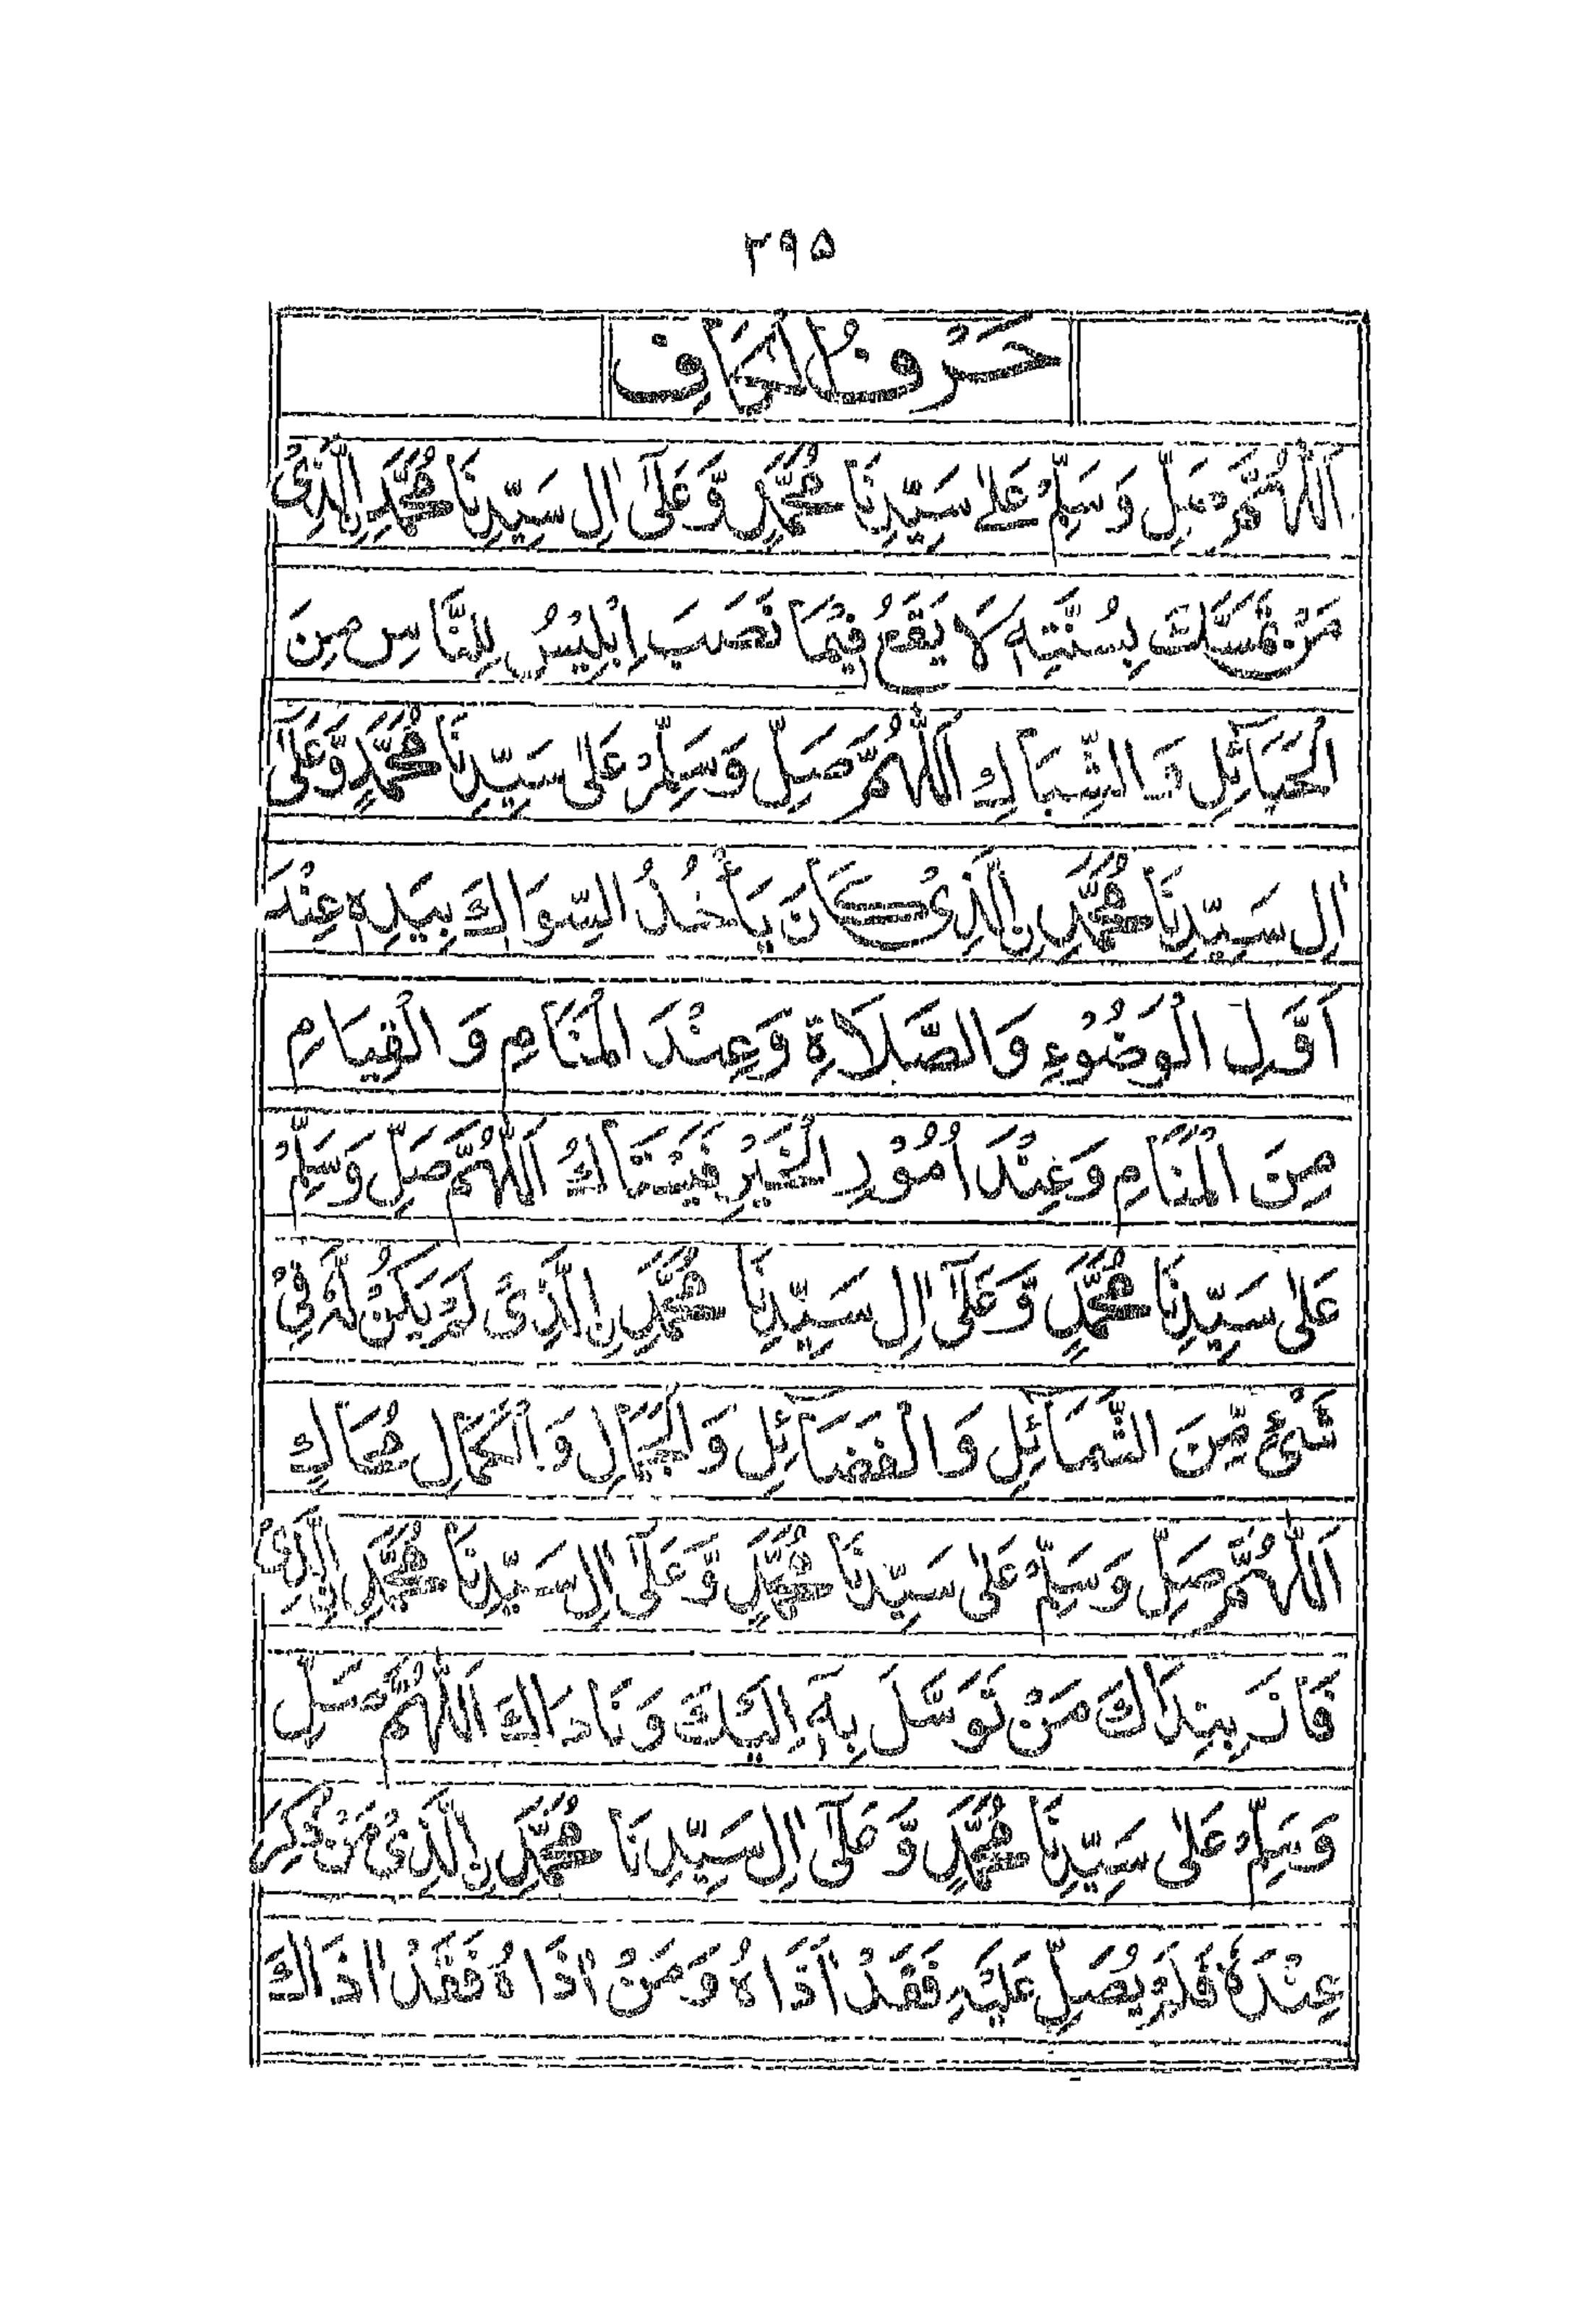 ۳۹۵
حَرْفُ الْكَافِ
اَللّٰهُمَّ صَلِّ وَسَلِّمْ عَلٰى سَيِّدِنَا مُحَمَّدٍ وَّعَلٰٓى اٰلِ سَيِّدِنَا مُحَمَّدِ نِ الَّذِىْ
مَنْ تَمَسَّكَ بِسُنَّتِهٖ لَا يَقَعُ فِيْمَا نَصَبَ اِبْلِيْسُ لِلنَّاسِ مِنَ
الْحَبَآئِلِ وَ الشِّبَاكِ اَللّٰهُمَّ صَلِّ وَسَلِّمْ عَلٰى سَيِّدِنَا مُحَمَّدٍ وَّعَلٰٓى
اٰلِ سَيِّدِنَا مُحَمَّدِ نِ الَّذِىْ كَانَ يَأْخُذُ السِّوَاكَ بِيَدِهٖ عِنْدَ
اَوَّلِ الْوَضُوْءِ وَالصَّلَاةِ وَعِنْدَ الْمَنَامِ وَ الْقِيَامِ
مِنَ الْمَنَامِ وَعِنْدَ اُمُوْرِ الْخَيْرِ فَيَسْتَاكُ اَللّٰهُمَّ صَلِّ وَسَلِّمْ
عَلٰى سَيِّدِنَا مُحَمَّدٍ وَّعَلٰٓى اٰلِ سَيِّدِنَا مُحَمَّدِ نِ الَّذِىْ لَمْ يَكُنْ لَّهٗ فِىْ
شَىْءٍ مِّنَ الشَّمَآئِلِ وَ الْفَضَآئِلِ وَ الْجَمَالِ وَ الْكَمَالِ مُحَاكٍ
اَللّٰهُمَّ صَلِّ وَسَلِّمْ عَلٰى سَيِّدِنَا مُحَمَّدٍ وَّعَلٰٓى اٰلِ سَيِّدِنَا مُحَمَّدِ نِ الَّذِىْ
فَازَ بِنِدَاكَ مَنْ تَوَسَّلَ بِهٖٓ اِلَيْكَ وَ نَادَاكَ اَللّٰهُمَّ صَلِّ
وَسَلِّمْ عَلٰى سَيِّدِنَا مُحَمَّدٍ وَّعَلٰٓى اٰلِ سَيِّدِنَا مُحَمَّدِ نِ الَّذِىْ مَنْ ذُكِرَ
عِنْدَهٗ فَلَمْ يُصَلِّ عَلَيْهِ فَقَدْ اٰذَاهُ وَمَنْ اٰذَاهُ فَقَدْ اٰذَاكَ